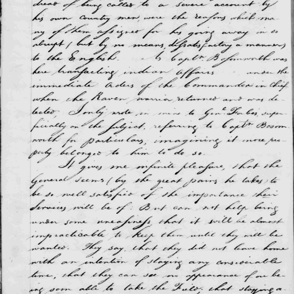 dread of being called to a severe account by
his own Country men, were the reasons which ma-
ny of them assigned for his going away in so
abrupt, but by no means, dissatisfactory a manner
to the English. Capt. Bosomworth was
here, transacting indian Affairs under the
immediate orders of the Commander in chief
when the Raven warrior returned and was de-
tected. I only note, in mine to Genl. Forbes, su-
perficially on the subject, referring to Capt. Bosom-
worth for particulars, imagining it more pro-
perly belonged to him to do so.
It gives me infinite pleasure, that the
General seems, by the great pains he takes to
be so well satisfied of the importance their
services will be of. But I can not help being
under some uneasiness that it will be almost
impracticable to keep them until they will be
wanted. They say, that they did not leave home
with an intention of staying any considerable
time, that they can see no appearance of our be-
ing soon able to take the Field, that staying